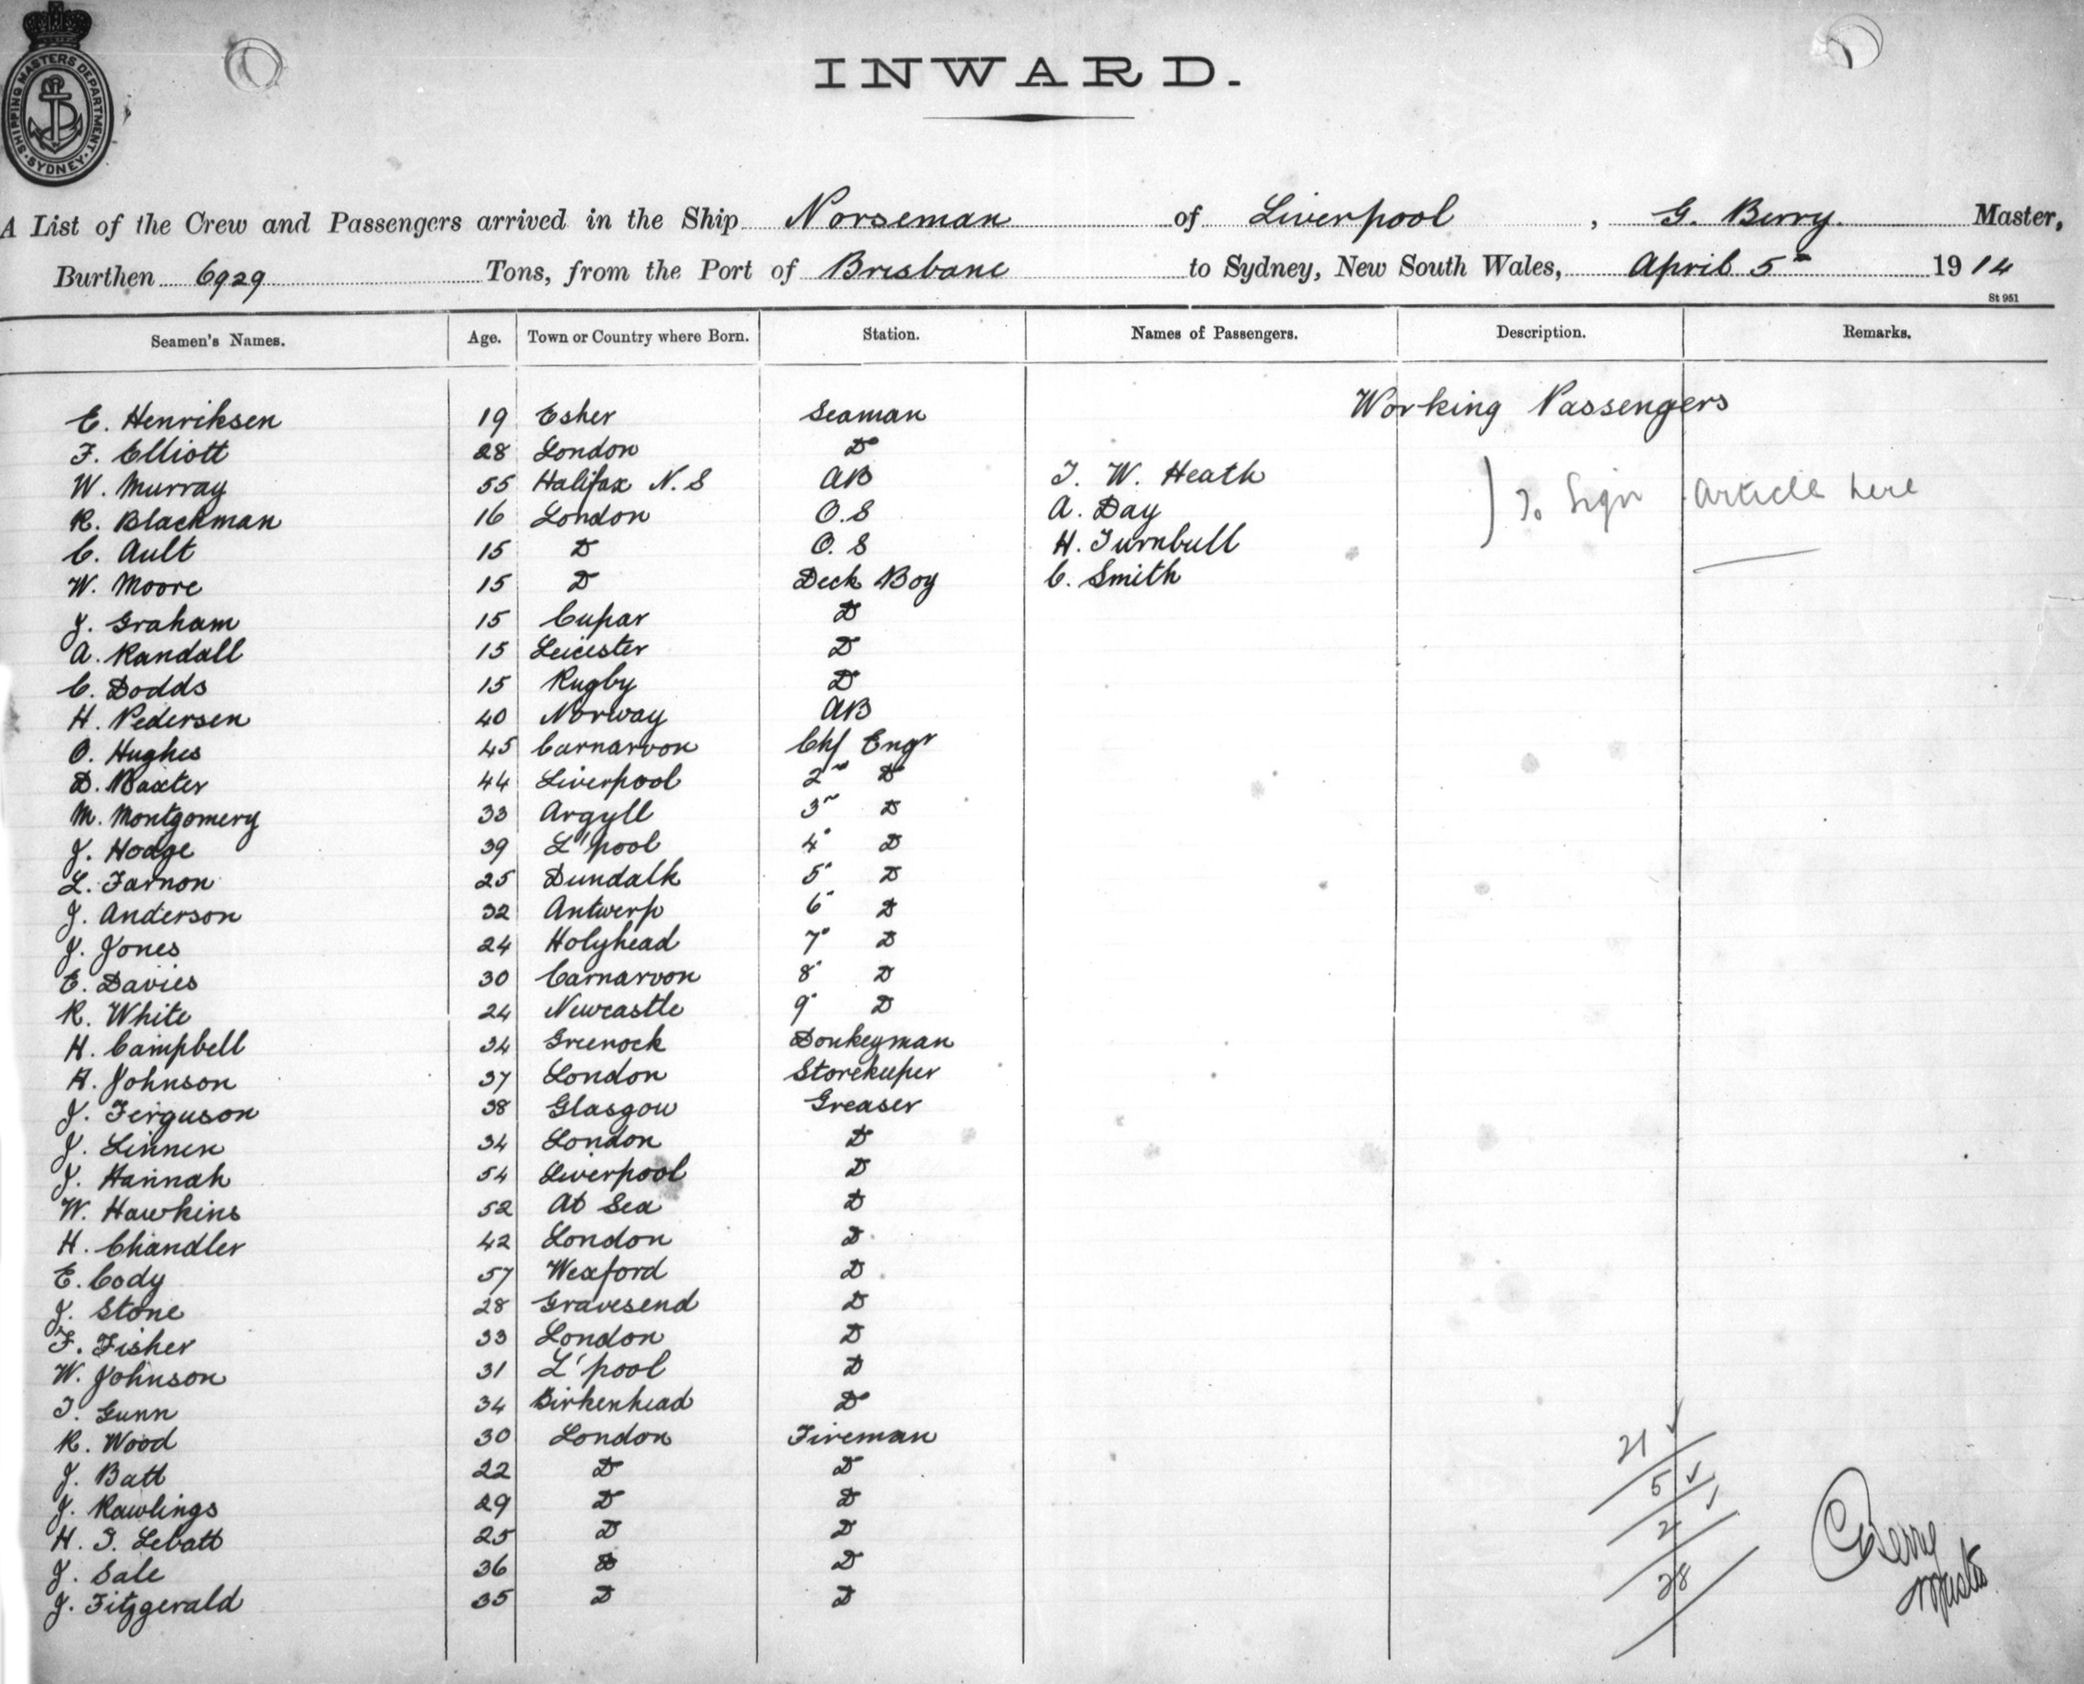 SHIPPING MASTERS DEPARTMENT. SYDNEY.
INWARD.
A List of the Crew and Passengers arrived in the Ship Norseman of Liverpool, G. Berry Master,
Burthen 6929 Tons, from the Port of Brisbane to Sydney, New South Wales, April 5th 1914
St 951
Seamen's Names. Age. Town or Country where Born. Station. Names of Passengers. Description. Remarks.
Working Passengers
E. Henriksen 19 Esher Seaman
F. Elliott 28 London Do
W. Murray 55 Halifax N.S AB T. W. Heath
R. Blackman 16 London O.S A. Day To Sign Article here
C. Ault 15 D O.S H. Turnbull
W. Moore 15 D Deck Boy C. Smith
J. Graham 15 Cupar D
A. Randall 15 Leicester D
C. Dodds 15 Rugby D
H. Pedersen 40 Norway AB
O. Hughes 45 Carnarvon Chf Engr
D. Baxter 44 Liverpool 2nd D
M. Montgomery 33 Argyll 3r D
J. Hodge 39 L'pool 4" D
L. Farnon 25 Dundalk 5" D
J. Anderson 32 Antwerp 6" D
J. Jones 24 Holyhead 7" D
E. Davies 30 Carnarvon 8" D
R. White 24 Newcastle 9" D
H. Campbell 34 Greenock Donkeyman
A. Johnson 37 London Storekeeper
J. Ferguson 38 Glasgow Greaser
J. Linnen 34 London D
J. Hannah 54 Liverpool D
W. Hawkins 52 At Sea D
H. Chandler 42 London D
E. Cody 57 Wexford D
J. Stone 28 Gravesend D
F. Fisher 33 London D
W. Johnson 31 L'pool D
T. Gunn 34 Birkenhead D
R. Wood 30 London Fireman
J. Batt 22 D D
J. Rawlings 29 D D
H. T. Lebatt 25 D D
J. Sale 36 D D
J. Fitzgerald 35 D D
21
5
2
28
G Berry
Master